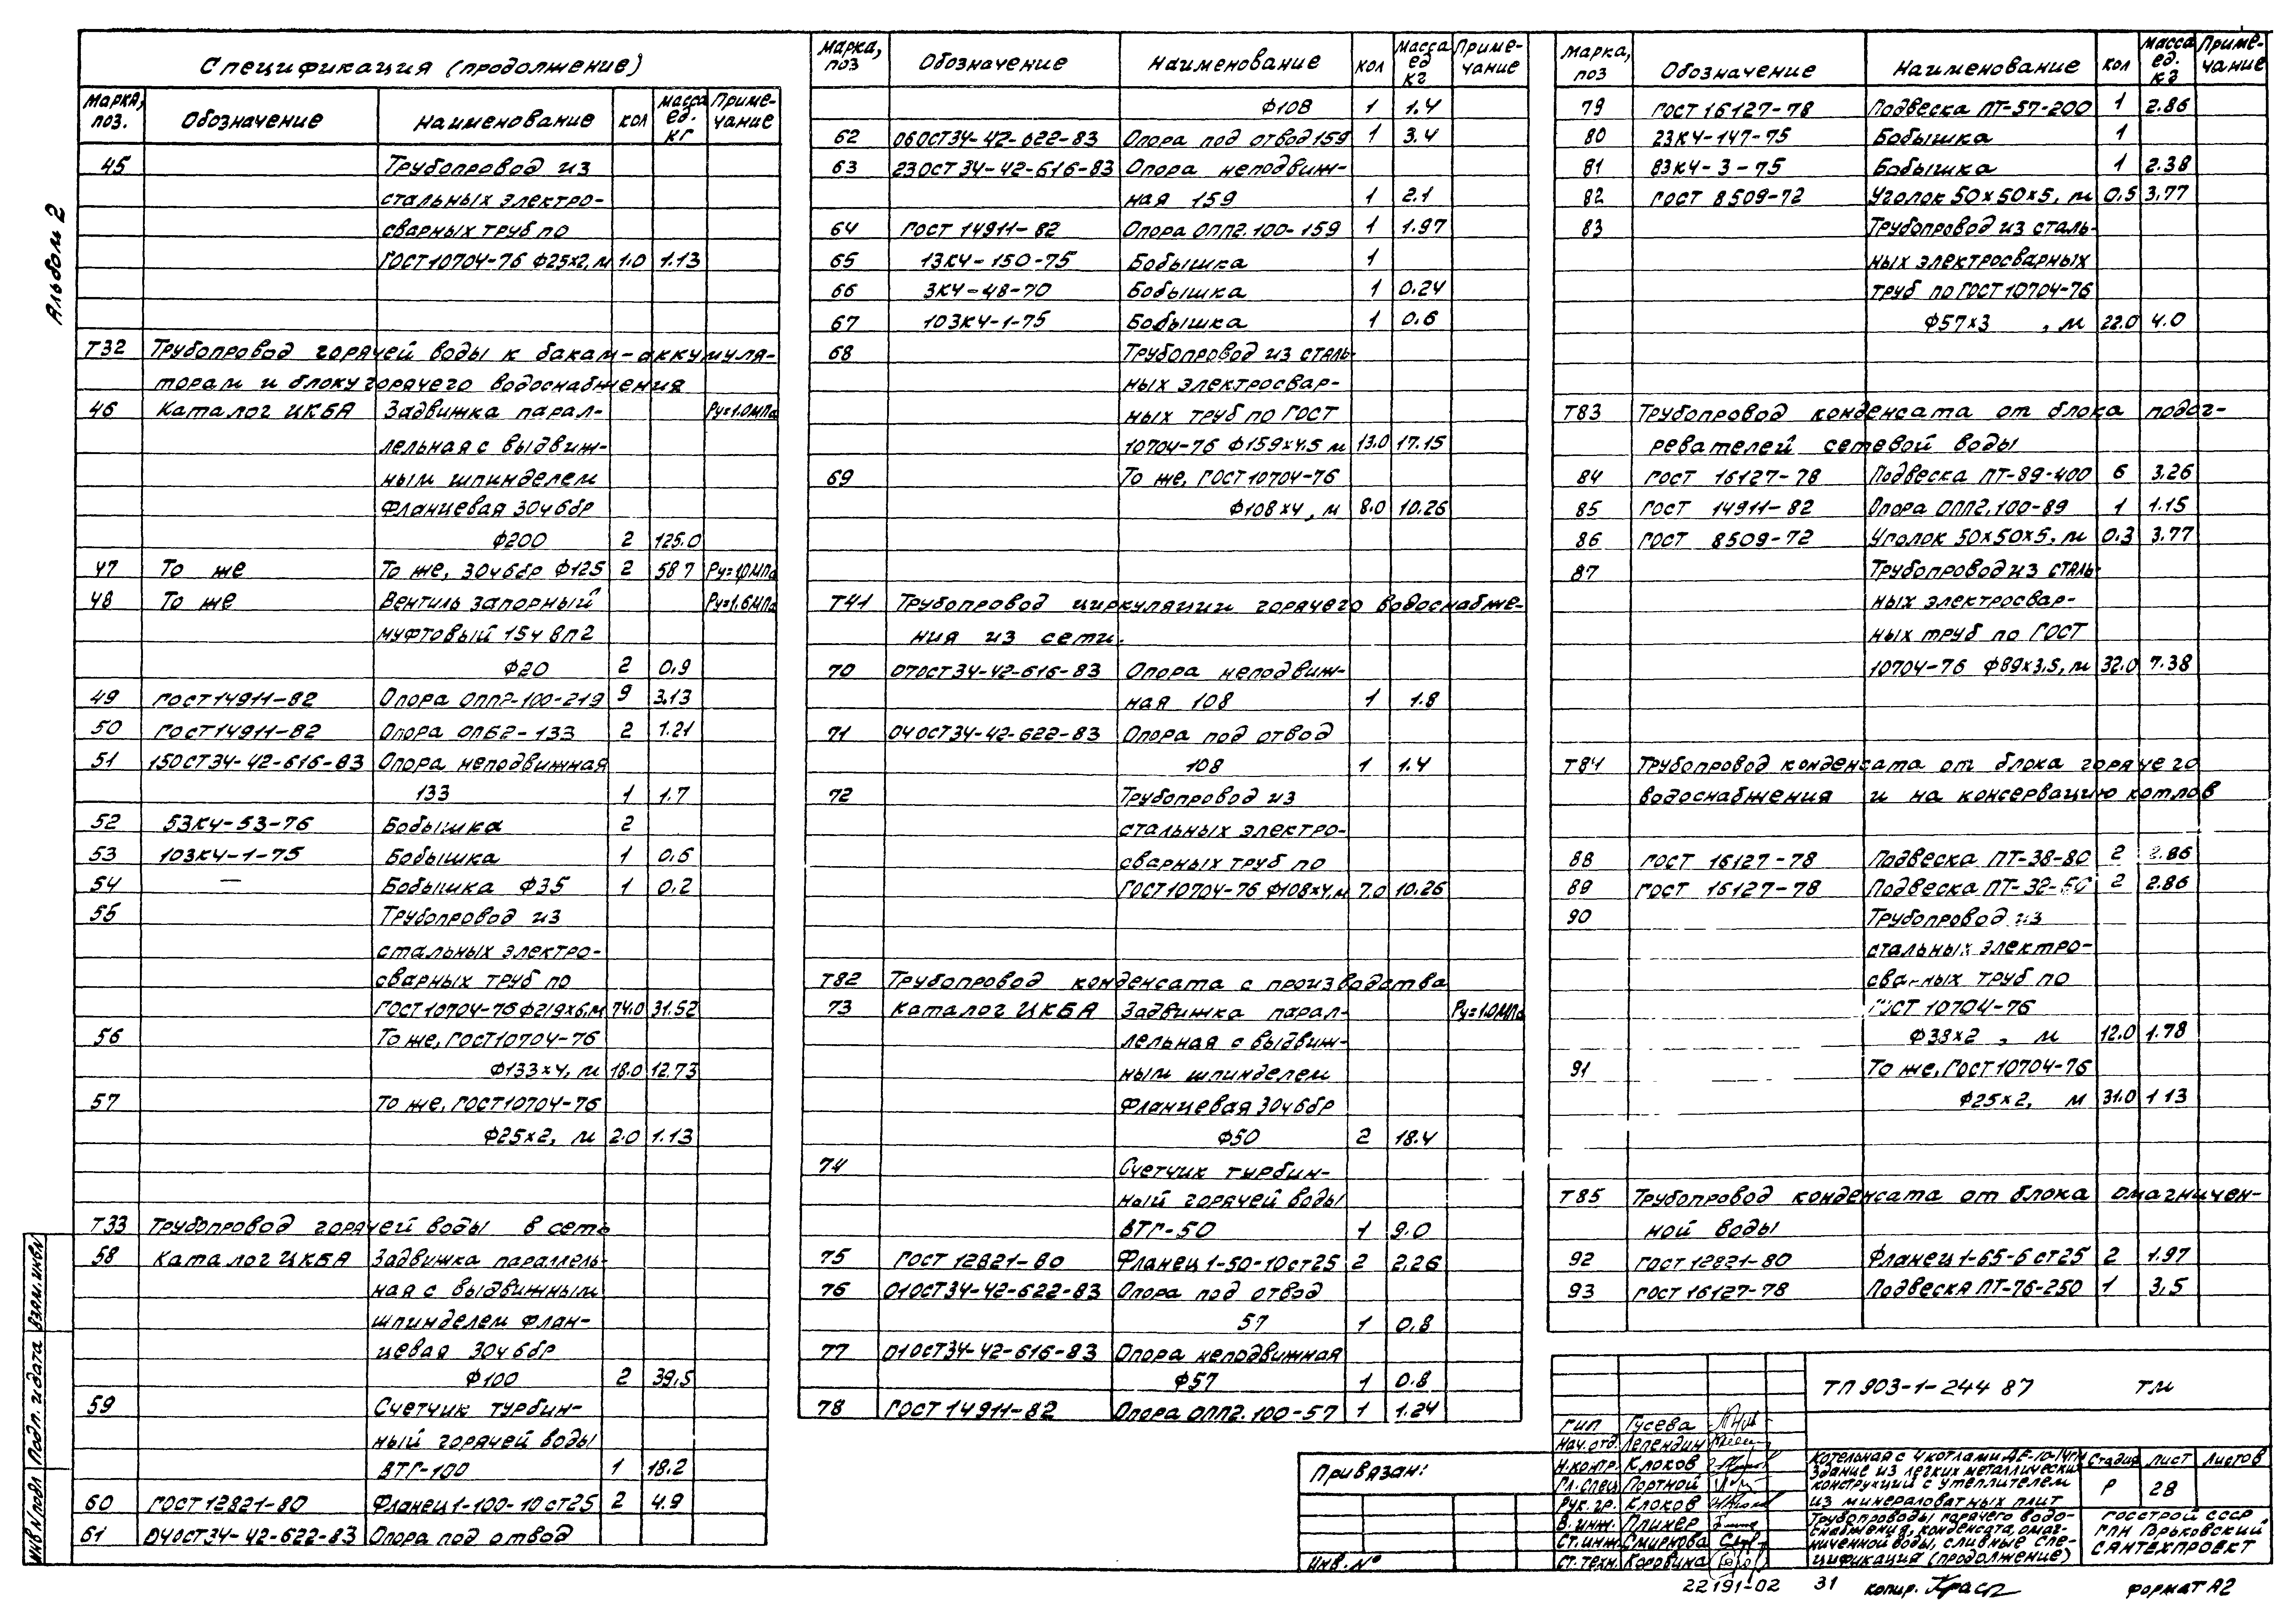 Альбом 2
Спецификация (продолжение)
Марка, поз. Обозначение Наименование кол масса ед. кг Приме-чание
45 Трубопровод из
стальных электро-
сварных труб по
ГОСТ 10704-76 ф25х2, м 1.0 1.13
Т32 Трубопровод горячей воды к бакам-аккумуля-
торам и блоку горячего водоснабжения
46 Каталог ЦКБА Задвижка парал- Ру=1.0МПа
лельная с выдвиж-
ным шпинделем
фланцевая 30ч6бр
ф200 2 125.0
47 То же То же, 30ч6бр ф125 2 58 7 Ру=1,0МПа
48 То же Вентиль запорный Ру=1.6МПа
муфтовый 15ч 8п2
ф20 2 0.9
49 ГОСТ 14911-82 Опора ОПП2-100-219 9 3.13
50 ГОСТ 14911-82 Опора ОПБ2-133 2 1.21
51 15ОСТ34-42-616-83 Опора неподвижная
133 1 1.7
52 53К4-53-76 Бобышка 2
53 103К4-1-75 Бобышка 1 0.6
54 — Бобышка ф35 1 0.2
55 Трубопровод из
стальных электро-
сварных труб по
ГОСТ 10704-76 ф219х6, м 74.0 31.52
56 То же, ГОСТ 10704-76
ф133х4, м 18.0 12.73
57 То же, ГОСТ 10704-76
ф25х2, м 2.0 1.13
Т33 Трубопровод горячей воды в сеть
58 Каталог ЦКБА Задвижка параллель-
ная с выдвижным
шпинделем флан-
цевая 30ч6бр
ф100 2 39.5
59 Счетчик турбин-
ный горячей воды
ВТГ-100 1 18.2
60 ГОСТ 12821-80 Фланец 1-100-10 ст25 2 4.9
61 04ОСТ34-42-622-83 Опора под отвод
Марка, поз Обозначение Наименование кол масса ед кг Приме-чание
ф108 1 1.4
62 06ОСТ34-42-622-83 Опора под отвод 159 1 3.4
63 23ОСТ34-42-616-83 Опора неподвиж-
ная 159 1 2.1
64 ГОСТ 14911-82 Опора ОПП2.100-159 1 1.97
65 13К4-150-75 Бобышка 1
66 3К4-48-70 Бобышка 1 0.24
67 103К4-1-75 Бобышка 1 0.6
68 Трубопровод из сталь-
ных электросвар-
ных труб по ГОСТ
10704-76 ф159х4.5 м 13.0 17.15
69 То же, ГОСТ 10704-76
ф108х4, м 8.0 10.26
Т41 Трубопровод циркуляции горячего водоснабже-
ния из сети.
70 07ОСТ34-42-616-83 Опора неподвиж-
ная 108 1 1.8
71 04ОСТ34-42-622-83 Опора под отвод
108 1 1.4
72 Трубопровод из
стальных электро-
сварных труб по
ГОСТ 10704-76 ф108х4, м 7.0 10.26
Т82 Трубопровод конденсата с производства
73 Каталог ЦКБА Задвижка парал- Ру=1.0МПа
лельная с выдвиж-
ным шпинделем
фланцевая 30ч6бр
ф50 2 18.4
74 Счетчик турбин-
ный горячей воды
ВТГ-50 1 9.0
75 ГОСТ 12821-80 Фланец 1-50-10 ст25 2 2.26
76 01ОСТ34-42-622-83 Опора под отвод
57 1 0.8
77 01ОСТ34-42-616-83 Опора неподвижная
ф57 1 0.8
78 ГОСТ 14911-82 Опора ОПП2.100-57 1 1.24
Марка, поз Обозначение Наименование кол масса ед. кг Приме-чание
79 ГОСТ 16127-78 Подвеска ПТ-57-200 1 2.86
80 23К4-147-75 Бобышка 1
81 83К4-3-75 Бобышка 1 2.38
82 ГОСТ 8509-72 Уголок 50х50х5, м 0.5 3.77
83 Трубопровод из сталь-
ных электросварных
труб по ГОСТ 10704-76
ф57х3 , м 22.0 4.0
Т83 Трубопровод конденсата от блока подог-
ревателей сетевой воды
84 ГОСТ 16127-78 Подвеска ПТ-89-400 6 3.26
85 ГОСТ 14911-82 Опора ОПП2.100-89 1 1.15
86 ГОСТ 8509-72 Уголок 50х50х5, м 0.3 3.77
87 Трубопровод из сталь-
ных электросвар-
ных труб по ГОСТ
10704-76 ф89х3.5, м 32.0 7.38
Т84 Трубопровод конденсата от блока горячего
водоснабжения и на консервацию котлов
88 ГОСТ 16127-78 Подвеска ПТ-38-80 2 2.86
89 ГОСТ 16127-78 Подвеска ПТ-32-50 2 2.86
90 Трубопровод из
стальных электро-
сварных труб по
ГОСТ 10704-76
ф38х2 , м 12.0 1.78
91 То же, ГОСТ 10704-76
ф25х2, м 31.0 1 13
Т85 Трубопровод конденсата от блока омагничен-
ной воды
92 ГОСТ 12821-80 Фланец 1-65-6 ст25 2 1.97
93 ГОСТ 16127-78 Подвеска ПТ-76-250 1 3,5
ТП 903-1-244 87 ТМ
Гип Гусева
Нач. отд. Лепендин
Н.контр. Клоков
Гл. спец Портной
Рук. гр. Клоков
В. инж. Плинер
Ст. инж. Смирнова
Ст. техн. Коровина
Привязан:
Инв. №
Котельная с 4 котлами ДЕ-10-14гм
Здание из легких металлических
конструкций с утеплителем
из минераловатных плит
Стадия Лист Листов
Р 28
Трубопроводы горячего водо-
снабжения, конденсата, омаг-
ниченной воды, сливные спе-
цификация (продолжение)
Госстрой СССР
ГПИ Горьковский
Сантехпроект
Инв № подл Подп. и дата Взам. инв №
22191-02 31 копир. формат А2